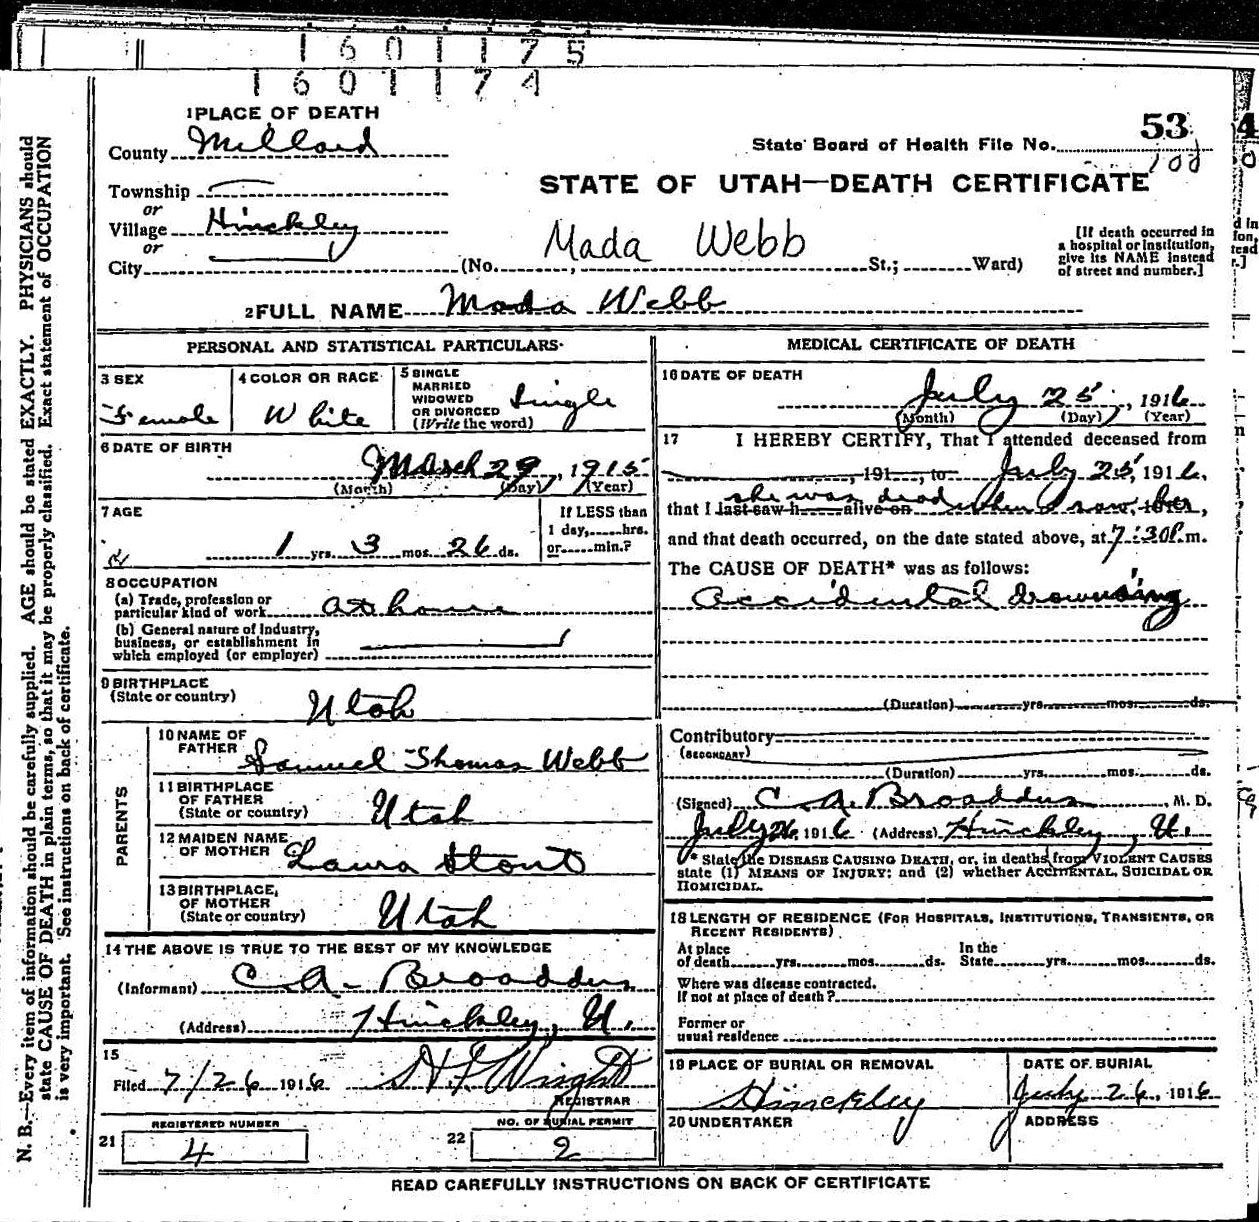 1601175
1601174
1 PLACE OF DEATH
County Millard
Township
or
Village Hinckley
or
City (No. , St.; Ward)
53
State Board of Health File No. 100
STATE OF UTAH—DEATH CERTIFICATE
Mada Webb
[If death occurred in
a hospital or institution,
give its NAME instead
of street and number.]
2 FULL NAME Mada Webb
PERSONAL AND STATISTICAL PARTICULARS
3 SEX
Female
4 COLOR OR RACE
White
5 SINGLE
MARRIED
WIDOWED
OR DIVORCED
(Write the word)
Single
6 DATE OF BIRTH
March 29, 1915
(Month) (Day) (Year)
7 AGE
1 yrs. 3 mos. 26 ds.
If LESS than
1 day, hrs.
or min.?
8 OCCUPATION
(a) Trade, profession or
particular kind of work at home
(b) General nature of industry,
business, or establishment in
which employed (or employer)
9 BIRTHPLACE
(State or country)
Utah
PARENTS
10 NAME OF
FATHER Samuel Thomas Webb
11 BIRTHPLACE
OF FATHER
(State or country) Utah
12 MAIDEN NAME
OF MOTHER Laura Stout
13 BIRTHPLACE,
OF MOTHER
(State or country) Utah
14 THE ABOVE IS TRUE TO THE BEST OF MY KNOWLEDGE
(Informant) C A Broaddus
(Address) Hinckley, U.
15
Filed 7/26 1916 H F Wright
REGISTRAR
REGISTERED NUMBER
21 4
NO. OF BURIAL PERMIT
22 2
MEDICAL CERTIFICATE OF DEATH
16 DATE OF DEATH
July 25, 1916
(Month) (Day) (Year)
17 I HEREBY CERTIFY, That I attended deceased from
, 191 , to July 25, 1916,
she was dead when I saw her
that I last saw h alive on , 191 ,
and that death occurred, on the date stated above, at 7:30P.m.
The CAUSE OF DEATH* was as follows:
Accidental drowning
(Duration) yrs. mos. ds.
Contributory
(SECONDARY)
(Duration) yrs. mos. ds.
(Signed) C. A. Broaddus, M. D.
July 26, 1916 (Address) Hinckley, U.
* State the DISEASE CAUSING DEATH, or, in deaths from VIOLENT CAUSES
state (1) MEANS OF INJURY; and (2) whether ACCIDENTAL, SUICIDAL OR
HOMICIDAL.
18 LENGTH OF RESIDENCE (FOR HOSPITALS, INSTITUTIONS, TRANSIENTS, OR
RECENT RESIDENTS)
At place In the
of death yrs. mos. ds. State yrs. mos. ds.
Where was disease contracted,
If not at place of death?
Former or
usual residence
19 PLACE OF BURIAL OR REMOVAL
Hinckley
DATE OF BURIAL
July 26, 1916
20 UNDERTAKER
ADDRESS
READ CAREFULLY INSTRUCTIONS ON BACK OF CERTIFICATE
N. B.—Every item of information should be carefully supplied. AGE should be stated EXACTLY. PHYSICIANS should
state CAUSE OF DEATH in plain terms, so that it may be properly classified. Exact statement of OCCUPATION
is very important. See instructions on back of certificate.